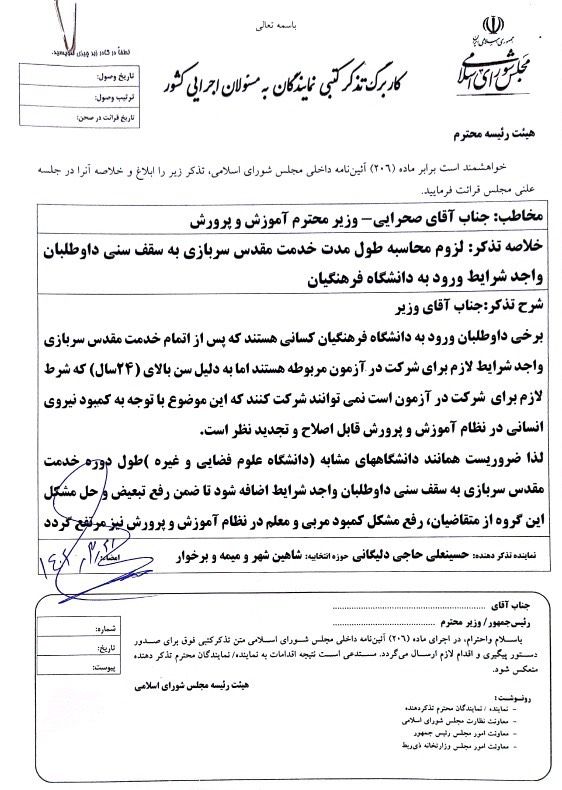 باسمه تعالی
جمهوری اسلامی ایران
مجلس شورای اسلامی
کاربرگ تذکر کتبی نمایندگان به مسئولان اجرایی کشور
لطفاً در کادر زیر چیزی ننویسید.
تاریخ وصول:
ترتیب وصول:
تاریخ قرائت در صحن:
هیئت رئیسه محترم
خواهشمند است برابر ماده (۲۰۶) آئین‌نامه داخلی مجلس شورای اسلامی، تذکر زیر را ابلاغ و خلاصه آنرا در جلسه
علنی مجلس قرائت فرمایید.
مخاطب: جناب آقای صحرایی– وزیر محترم آموزش و پرورش
خلاصه تذکر: لزوم محاسبه طول مدت خدمت مقدس سربازی به سقف سنی داوطلبان
واجد شرایط ورود به دانشگاه فرهنگیان
شرح تذکر:جناب آقای وزیر
برخی داوطلبان ورود به دانشگاه فرهنگیان کسانی هستند که پس از اتمام خدمت مقدس سربازی
واجد شرایط لازم برای شرکت در آزمون مربوطه هستند اما به دلیل سن بالای (۲۴سال) که شرط
لازم برای شرکت در آزمون است نمی توانند شرکت کنند که این موضوع با توجه به کمبود نیروی
انسانی در نظام آموزش و پرورش قابل اصلاح و تجدید نظر است.
لذا ضروریست همانند دانشگاههای مشابه (دانشگاه علوم قضایی و غیره )طول دوره خدمت
مقدس سربازی به سقف سنی داوطلبان واجد شرایط اضافه شود تا ضمن رفع تبعیض و حل مشکل
این گروه از متقاضیان، رفع مشکل کمبود مربی و معلم در نظام آموزش و پرورش نیز مرتفع گردد
نماینده تذکر دهنده: حسینعلی حاجی دلیگانی حوزه انتخابیه: شاهین شهر و میمه و برخوار
امضاء:
جناب آقای ........................................
رئیس‌جمهور/ وزیر محترم ........................................
باسلام واحترام، در اجرای ماده (۲۰۶) آئین‌نامه داخلی مجلس شورای اسلامی متن تذکرکتبی فوق برای صدور
دستور پیگیری و اقدام لازم ارسال می‌گردد. مستدعی است نتیجه اقدامات به نماینده/ نمایندگان محترم تذکر دهنده
منعکس شود.
هیئت رئیسه مجلس شورای اسلامی
شماره:
تاریخ:
پیوست:
رونوشت:
- نماینده / نمایندگان محترم تذکردهنده
- معاونت نظارت مجلس شورای اسلامی
- معاونت امور مجلس رئیس جمهور
- معاونت امور مجلس وزارتخانه ذی‌ربط